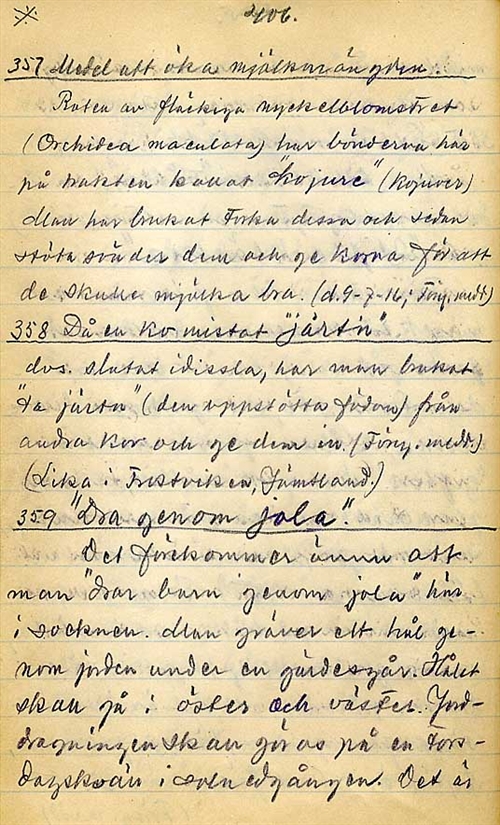 406.
357 Medel att öka mjölkmängden
Roten av fläckiga nyckelblomstret
(Orchidea maculata) har bönderna här
på trakten kallat "kojure" (kojuver)
Man har brukat torka dessa och sedan
stöta sönder dem och ge korna för att
de skulle mjölka bra. (d. 9-7-16; Förf. medd)
358 Då en ko mistat "järtn"
dvs. slutat idissla, har man brukat
"ta järtn" (den uppstötta födan) från
andra kor och ge dem in. (Förf. medd.)
(Lika i Frostviken, Jämtland.)
359 "Dra genom jola".
Det förekommer ännu att
man "drar barn genom jola" här
i socknen. Man gräver ett hål ge-
nom jorden under en gärdesgår. Hålet
skall gå i öster och väster. Jord-
dragningen skall göras på en tors-
dagskväll i solnedgången. Det är